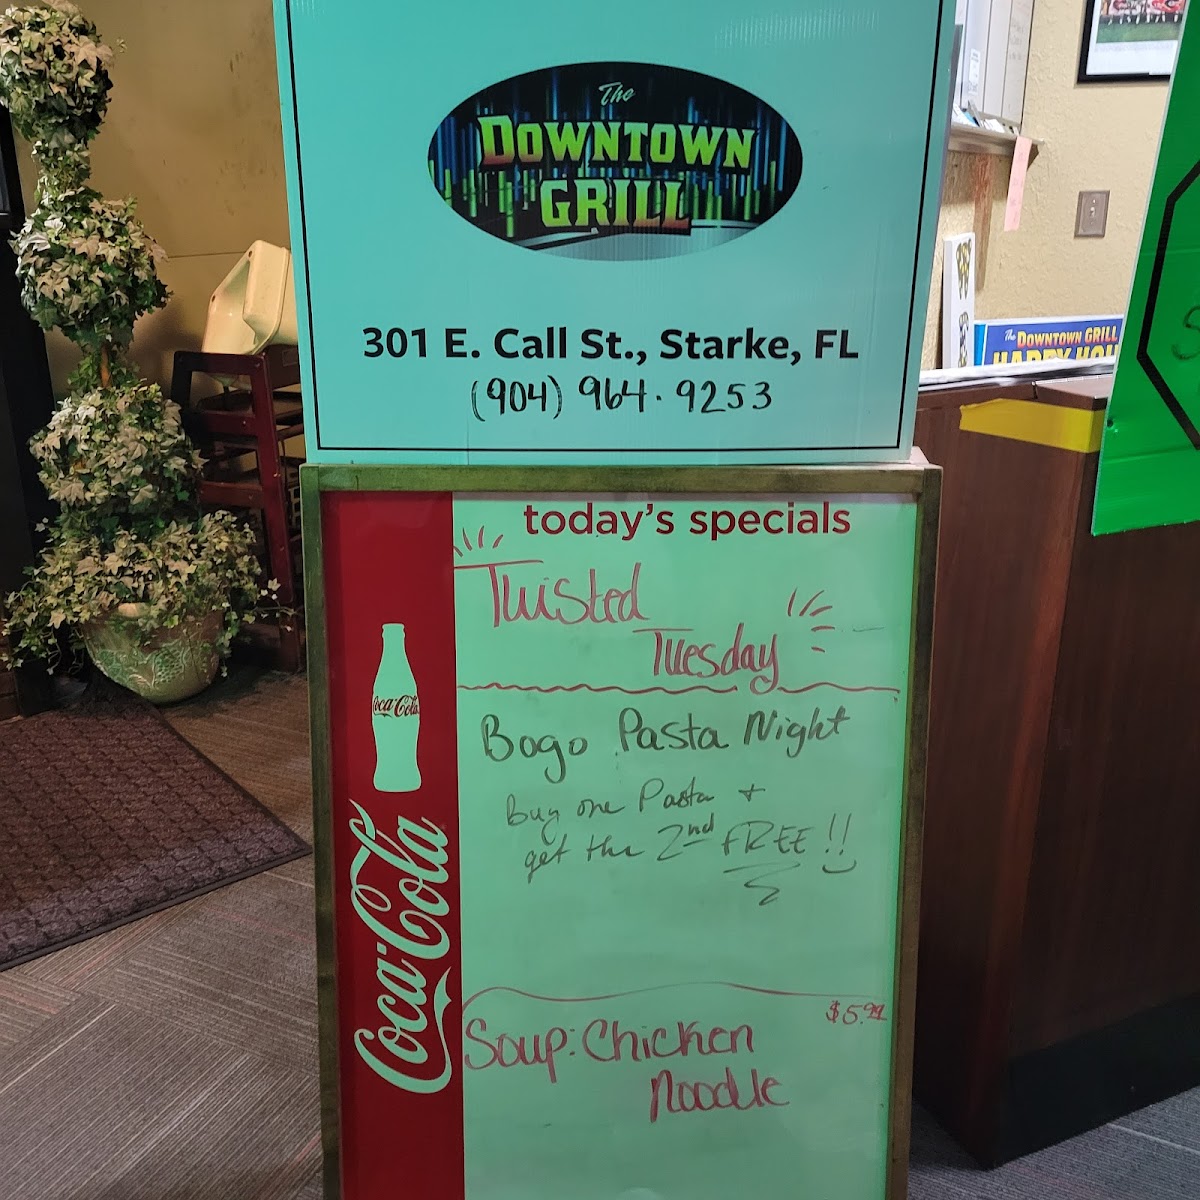 The
DOWNTOWN
GRILL
301 E. Call St., Starke, FL
(904) 964-9253
The DOWNTOWN GRILL
HAPPY HOU
today's specials
Twisted
Tuesday
Bogo Pasta Night
Buy one Pasta +
get the 2nd FREE!!
Coca-Cola
Coca-Cola
$5.99
Soup: Chicken
Noodle